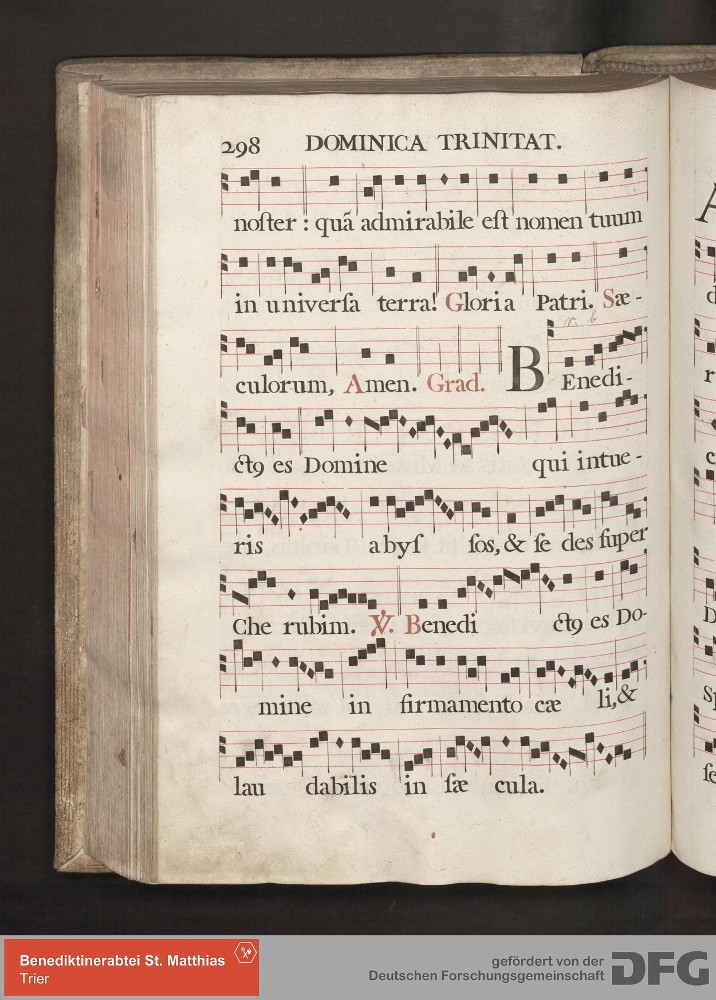 298 DOMINICA TRINITAT.
noſter : quã admirabile eſt nomen tuum
in univerſa terra! Gloria Patri. Sæ-
culorum, Amen. Grad. BEnedi-
ct9 es Domine qui intue-
ris abyſ ſos, & ſe des ſuper
Che rubim. ℣. Benedi ct9 es Do-
mine in firmamento cæ li, &
lau dabilis in ſæ cula.
Benediktinerabtei St. Matthias
Trier
gefördert von der
Deutschen Forschungsgemeinschaft
DFG